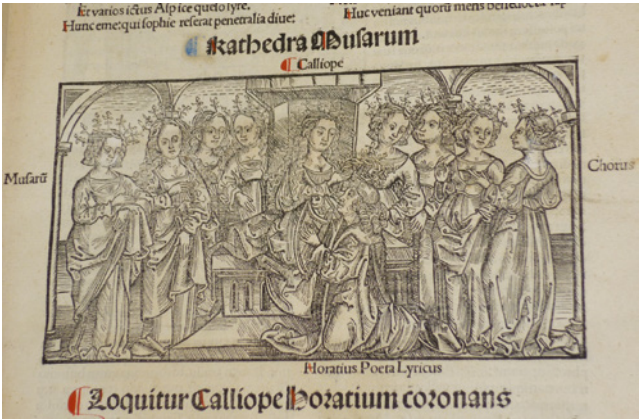 Et varios ictus Aspice queso lyre,
Hunc eme: qui sophie reserat penetralia diue:
Huc veniant quorū mens
Kathedra Musarum
Calliope
Musarū
Chorus
Horatius Poeta Lyricus
Loquitur Calliope Horatium coronans